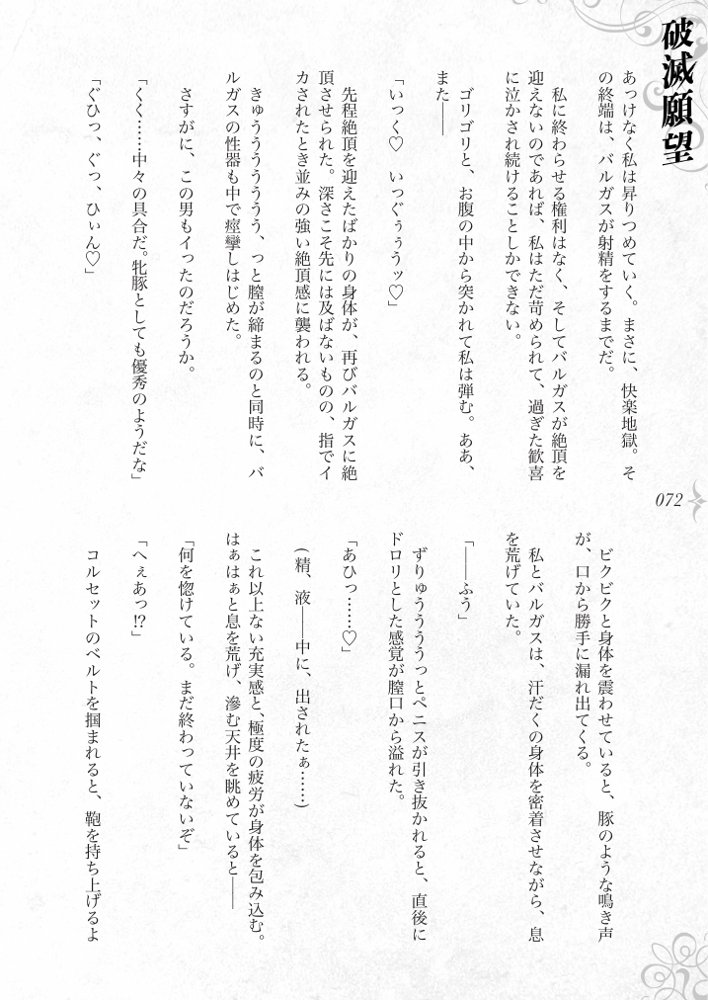 破滅願望
あっけなく私は昇りつめていく。まさに、快楽地獄。そ
の終端は、バルガスが射精をするまでだ。
私に終わらせる権利はなく、そしてバルガスが絶頂を
迎えないのであれば、私はただ苛められて、過ぎた歓喜
に泣かされ続けることしかできない。
ゴリゴリと、お腹の中から突かれて私は弾む。ああ、
また――
「いっく♡ いっぐぅぅうッ♡」
先程絶頂を迎えたばかりの身体が、再びバルガスに絶
頂させられた。深さこそ先には及ばないものの、指でイ
カされたとき並みの強い絶頂感に襲われる。
きゅううううううう、っと膣が締まるのと同時に、バ
ルガスの性器も中で痙攣しはじめた。
さすがに、この男もイったのだろうか。
「くく……中々の具合だ。牝豚としても優秀のようだな」
「ぐひっ、ぐっ、ひぃん♡」
072
ビクビクと身体を震わせていると、豚のような鳴き声
が、口から勝手に漏れ出てくる。
私とバルガスは、汗だくの身体を密着させながら、息
を荒げていた。
「――ふう」
ずりゅううううっとペニスが引き抜かれると、直後に
ドロリとした感覚が膣口から溢れた。
「あひっ……♡」
(精、液――中に、出されたぁ……)
これ以上ない充実感と、極度の疲労が身体を包み込む。
はぁはぁと息を荒げ、滲む天井を眺めていると――
「何を惚けている。まだ終わっていないぞ」
「へぇあっ!?」
コルセットのベルトを掴まれると、鞄を持ち上げるよ